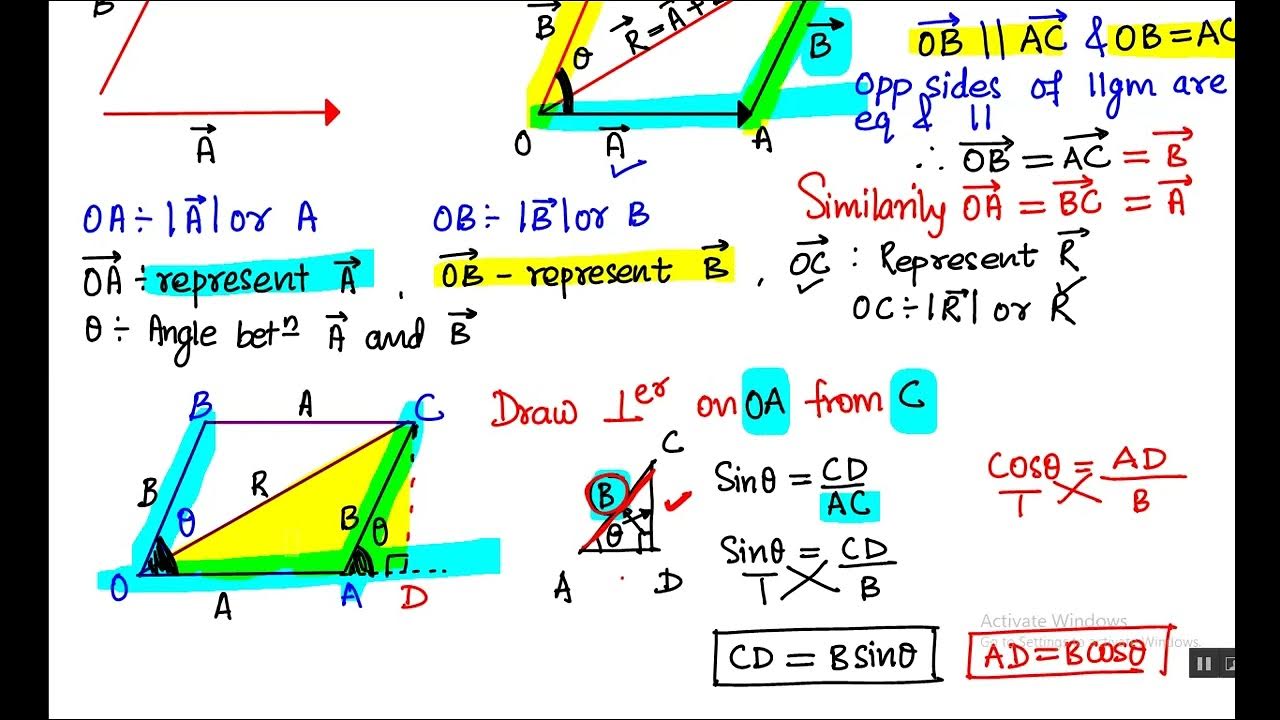 B
→B
→R = →A +
→B
θ
O
→A
A
→OB || →AC & OB = AC
Opp sides of ||gm are
eq & ||
∴ →OB = →AC = →B
Similarily →OA = →BC = →A
→A
OA ÷ |→A| or A
OB ÷ |→B| or B
→OA ÷ represent →A , →OB - represent →B , →OC : Represent →R
θ ÷ Angle betⁿ →A and →B
OC ÷ |→R| or R
Draw ⊥er on OA from C
B A C
B R B
θ θ
O A A D
C
B
θ
A D
Sinθ = CD/AC
Cosθ = AD/B
1
Sinθ = CD/B
1
CD = Bsinθ
AD = Bcosθ
Activate Windows
Go to Settings to activate Windows.